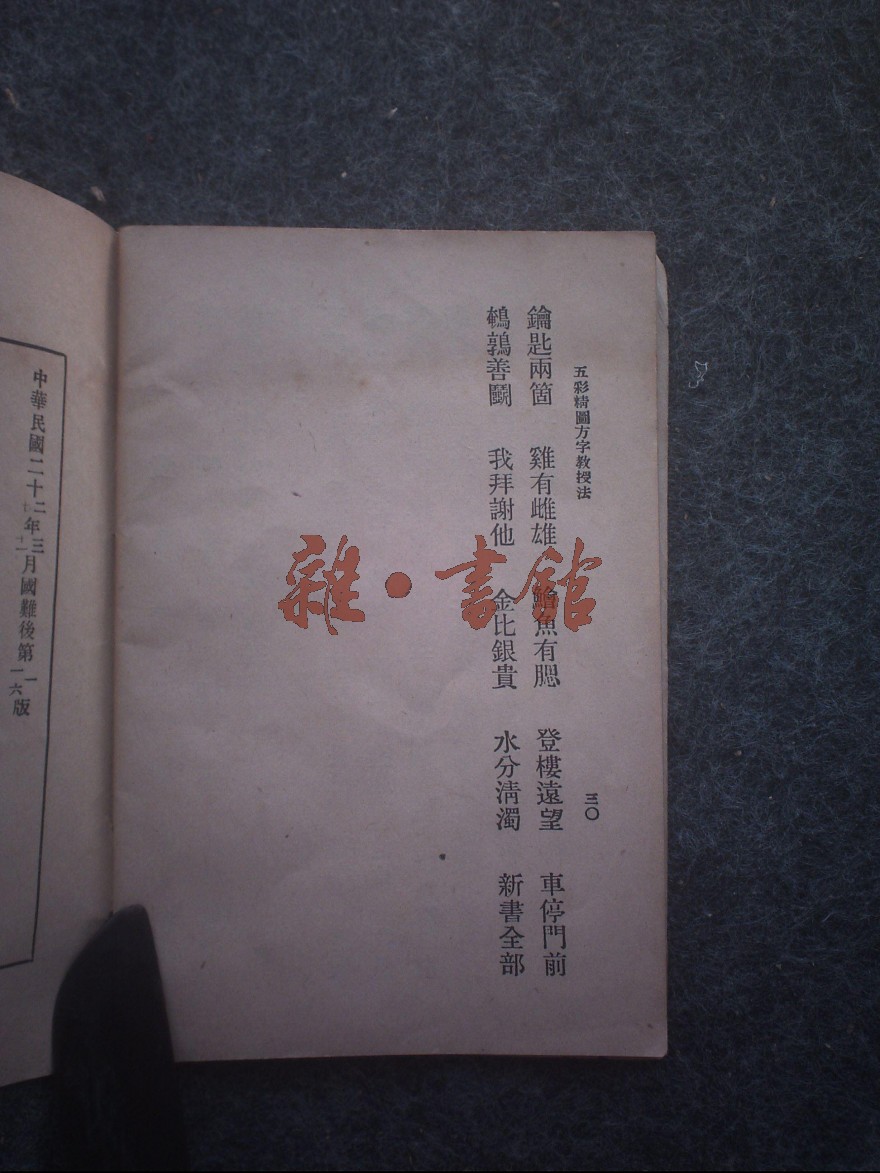 五彩精圖方字教授法 三〇
鑰匙兩箇 雞有雌雄 魚有腮 登樓遠望 車停門前
鵪鶉善鬭 我拜謝他 金比銀貴 水分淸濁 新書全部
雜•書館
中華民國二十二年三月國難後第一版
七 十一 一六